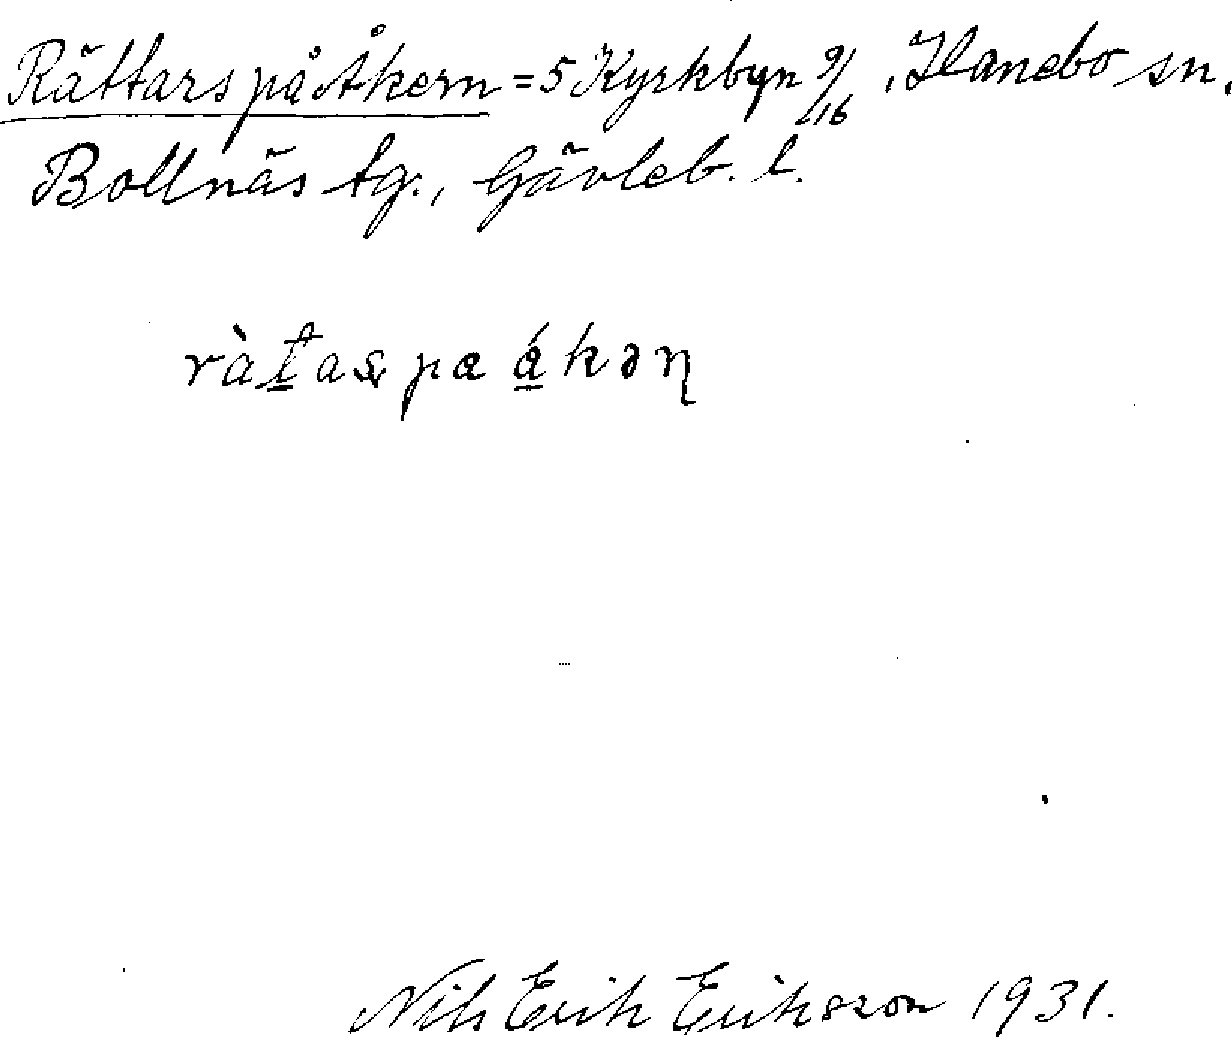 Rättars på Åkern = 5 Kyrkbyn 9/16, Hanebo sn,
Bollnäs tg., Gävleb. l.
ràt̲as pa á̲kəɳ
Nils Erik Eriksson 1931.